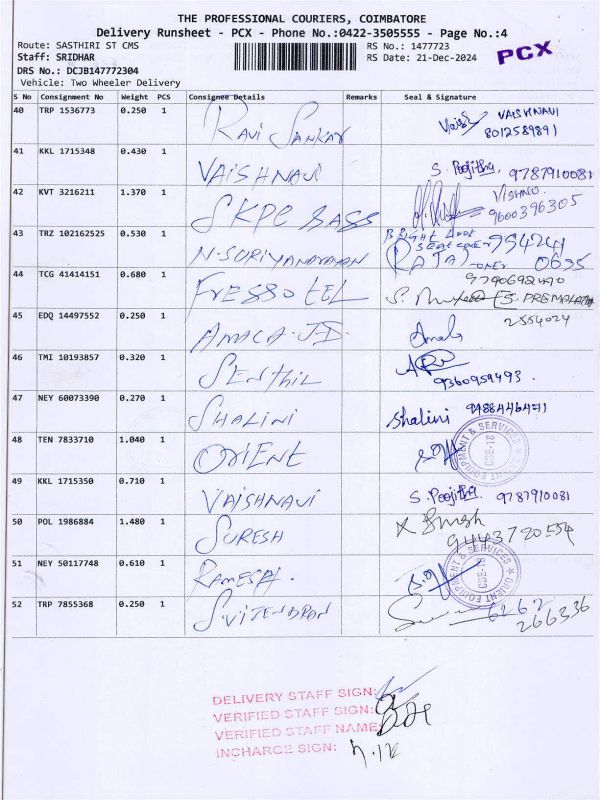 THE PROFESSIONAL COURIERS, COIMBATORE
Delivery Runsheet - PCX - Phone No.:0422-3505555 - Page No.:4
Route: SASTHIRI ST CMS RS No.: 1477723
Staff: SRIDHAR RS Date: 21-Dec-2024 PCX
DRS No.: DCJB147772304
Vehicle: Two Wheeler Delivery
S No Consignment No Weight PCS Consignee Details Remarks Seal & Signature
40 TRP 1536773 0.250 1 RAVI SANKAR VAISHNAVI
8012589891
41 KKL 1715348 0.430 1 VAISHNAVI S. Poojitha. 9787910081
42 KVT 3216211 1.370 1 SKPC SASS VISHNU.
9600396305
43 TRZ 102162525 0.530 1 N. SURIYANARAYAN RAJA
44 TCG 41414151 0.680 1 FRESSOTEL 9790692490
PREMALATHA
2554024
45 EDQ 14497552 0.250 1 AMALA J.D Amala
46 TMI 10193857 0.320 1 SENTHIL
9360959493.
47 NEY 60073390 0.270 1 SHALINI Shalini
48 TEN 7833710 1.040 1 ORIENT ORIENT EQUIPMENT & SERVICES CBE-18
49 KKL 1715350 0.710 1 VAISHNAVI S. Poojitha. 9787910081
50 POL 1986884 1.480 1 SURESH
9443720554
51 NEY 50117748 0.610 1 RAMESH. ORIENT EQUIPMENT & SERVICES CBE-18
52 TRP 7855368 0.250 1 6262
266336
DELIVERY STAFF SIGN:
VERIFIED STAFF SIGN:
VERIFIED STAFF NAME:
INCHARGE SIGN: